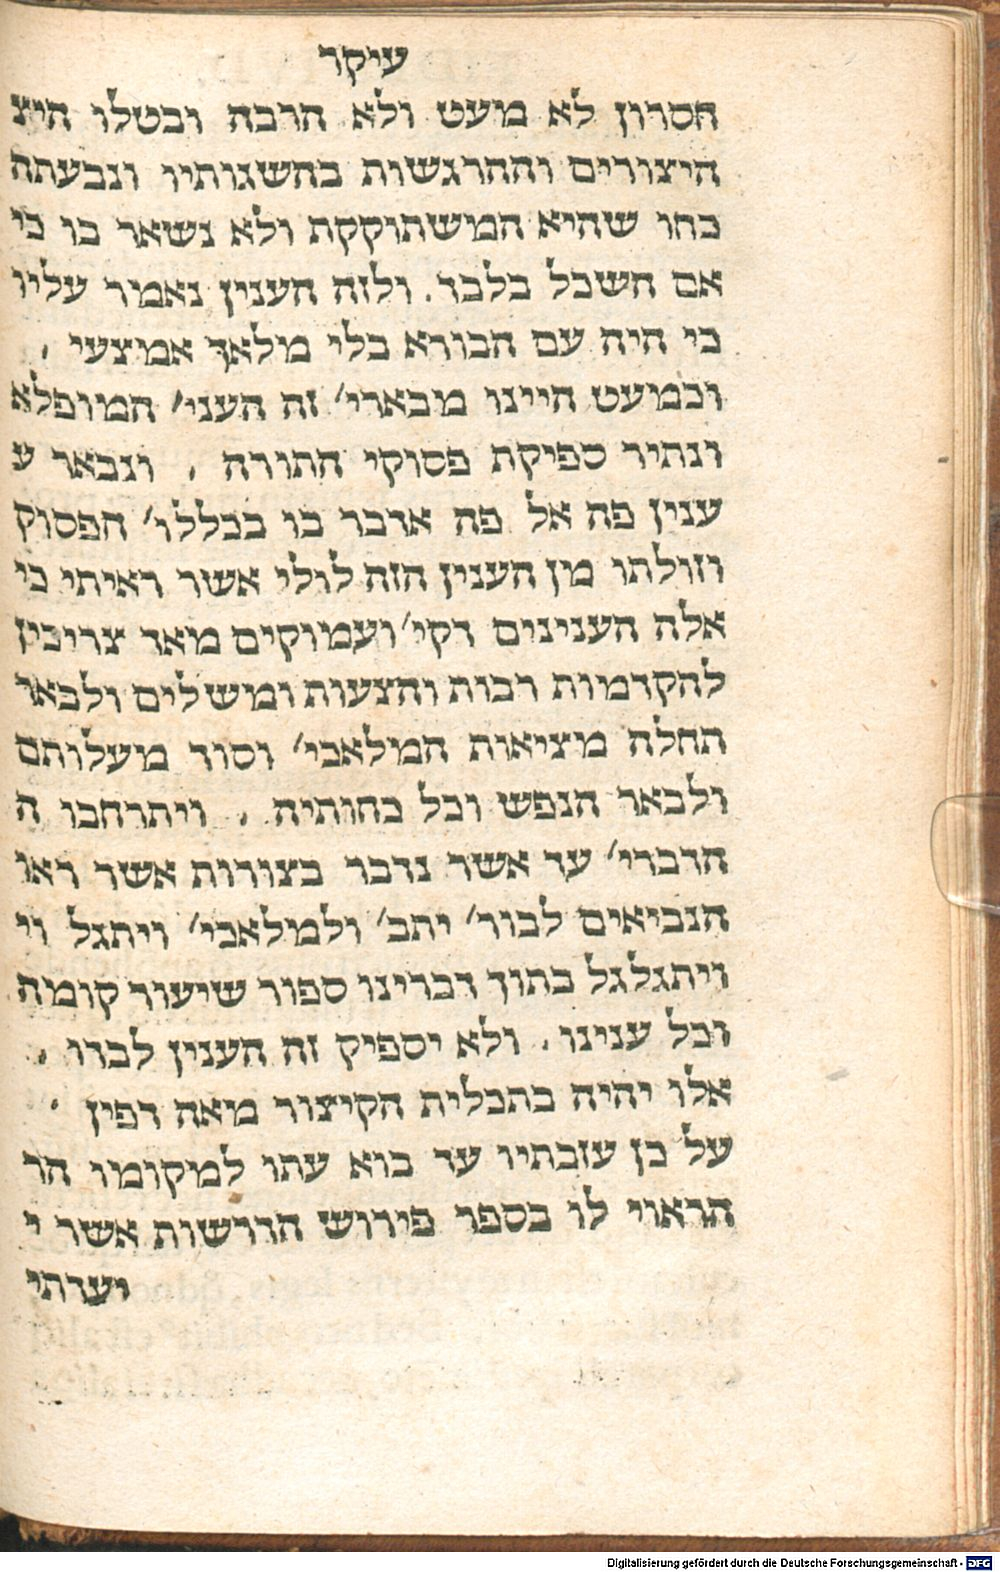 עיקר
חסרון לא מעט ולא הרבה ובטלו היצ
היצורים וההרגשות בהשגותיו ונבעתה
כחו שהיא המשתוקקת ולא נשאר בו כי
אם השכל בלבד. ולזה הענין נאמר עליו
כי היה עם הבורא בלי מלאך אמצעי .
וכמעט היינו מבארי׳ זה העני׳ המופלא
ונתיר ספיקת פסוקי התורה . ונבאר ע
ענין פה אל פה אדבר בו בכללו׳ הפסוק
וזולתו מן הענין הזה לולי אשר ראיתי כי
אלה הענינים דקי׳ ועמוקים מאד צריכין
להקדמות רבות והצעות ומשלים ולבאר
תחלה מציאות המלאכי׳ וסוד מעלותם
ולבאר הנפש וכל כחותיה . ויתרחבו ה
הדברי׳ עד אשר נדבר בצורות אשר ראו
הנביאים לבור׳ יתב׳ ולמלאכי׳ ויתגל וי
ויתגלגל בתוך דברינו ספור שיעור קומה
וכל ענינו. ולא יספיק זה הענין לבדו .
אלו יהיה בתכלית הקיצור מאה דפין .
על כן עזבתיו עד בוא עתו למקומו הר
הראוי לו בספר פירוש הדרשות אשר י
יעדתי
Digitalisierung gefördert durch die Deutsche Forschungsgemeinschaft - DFG